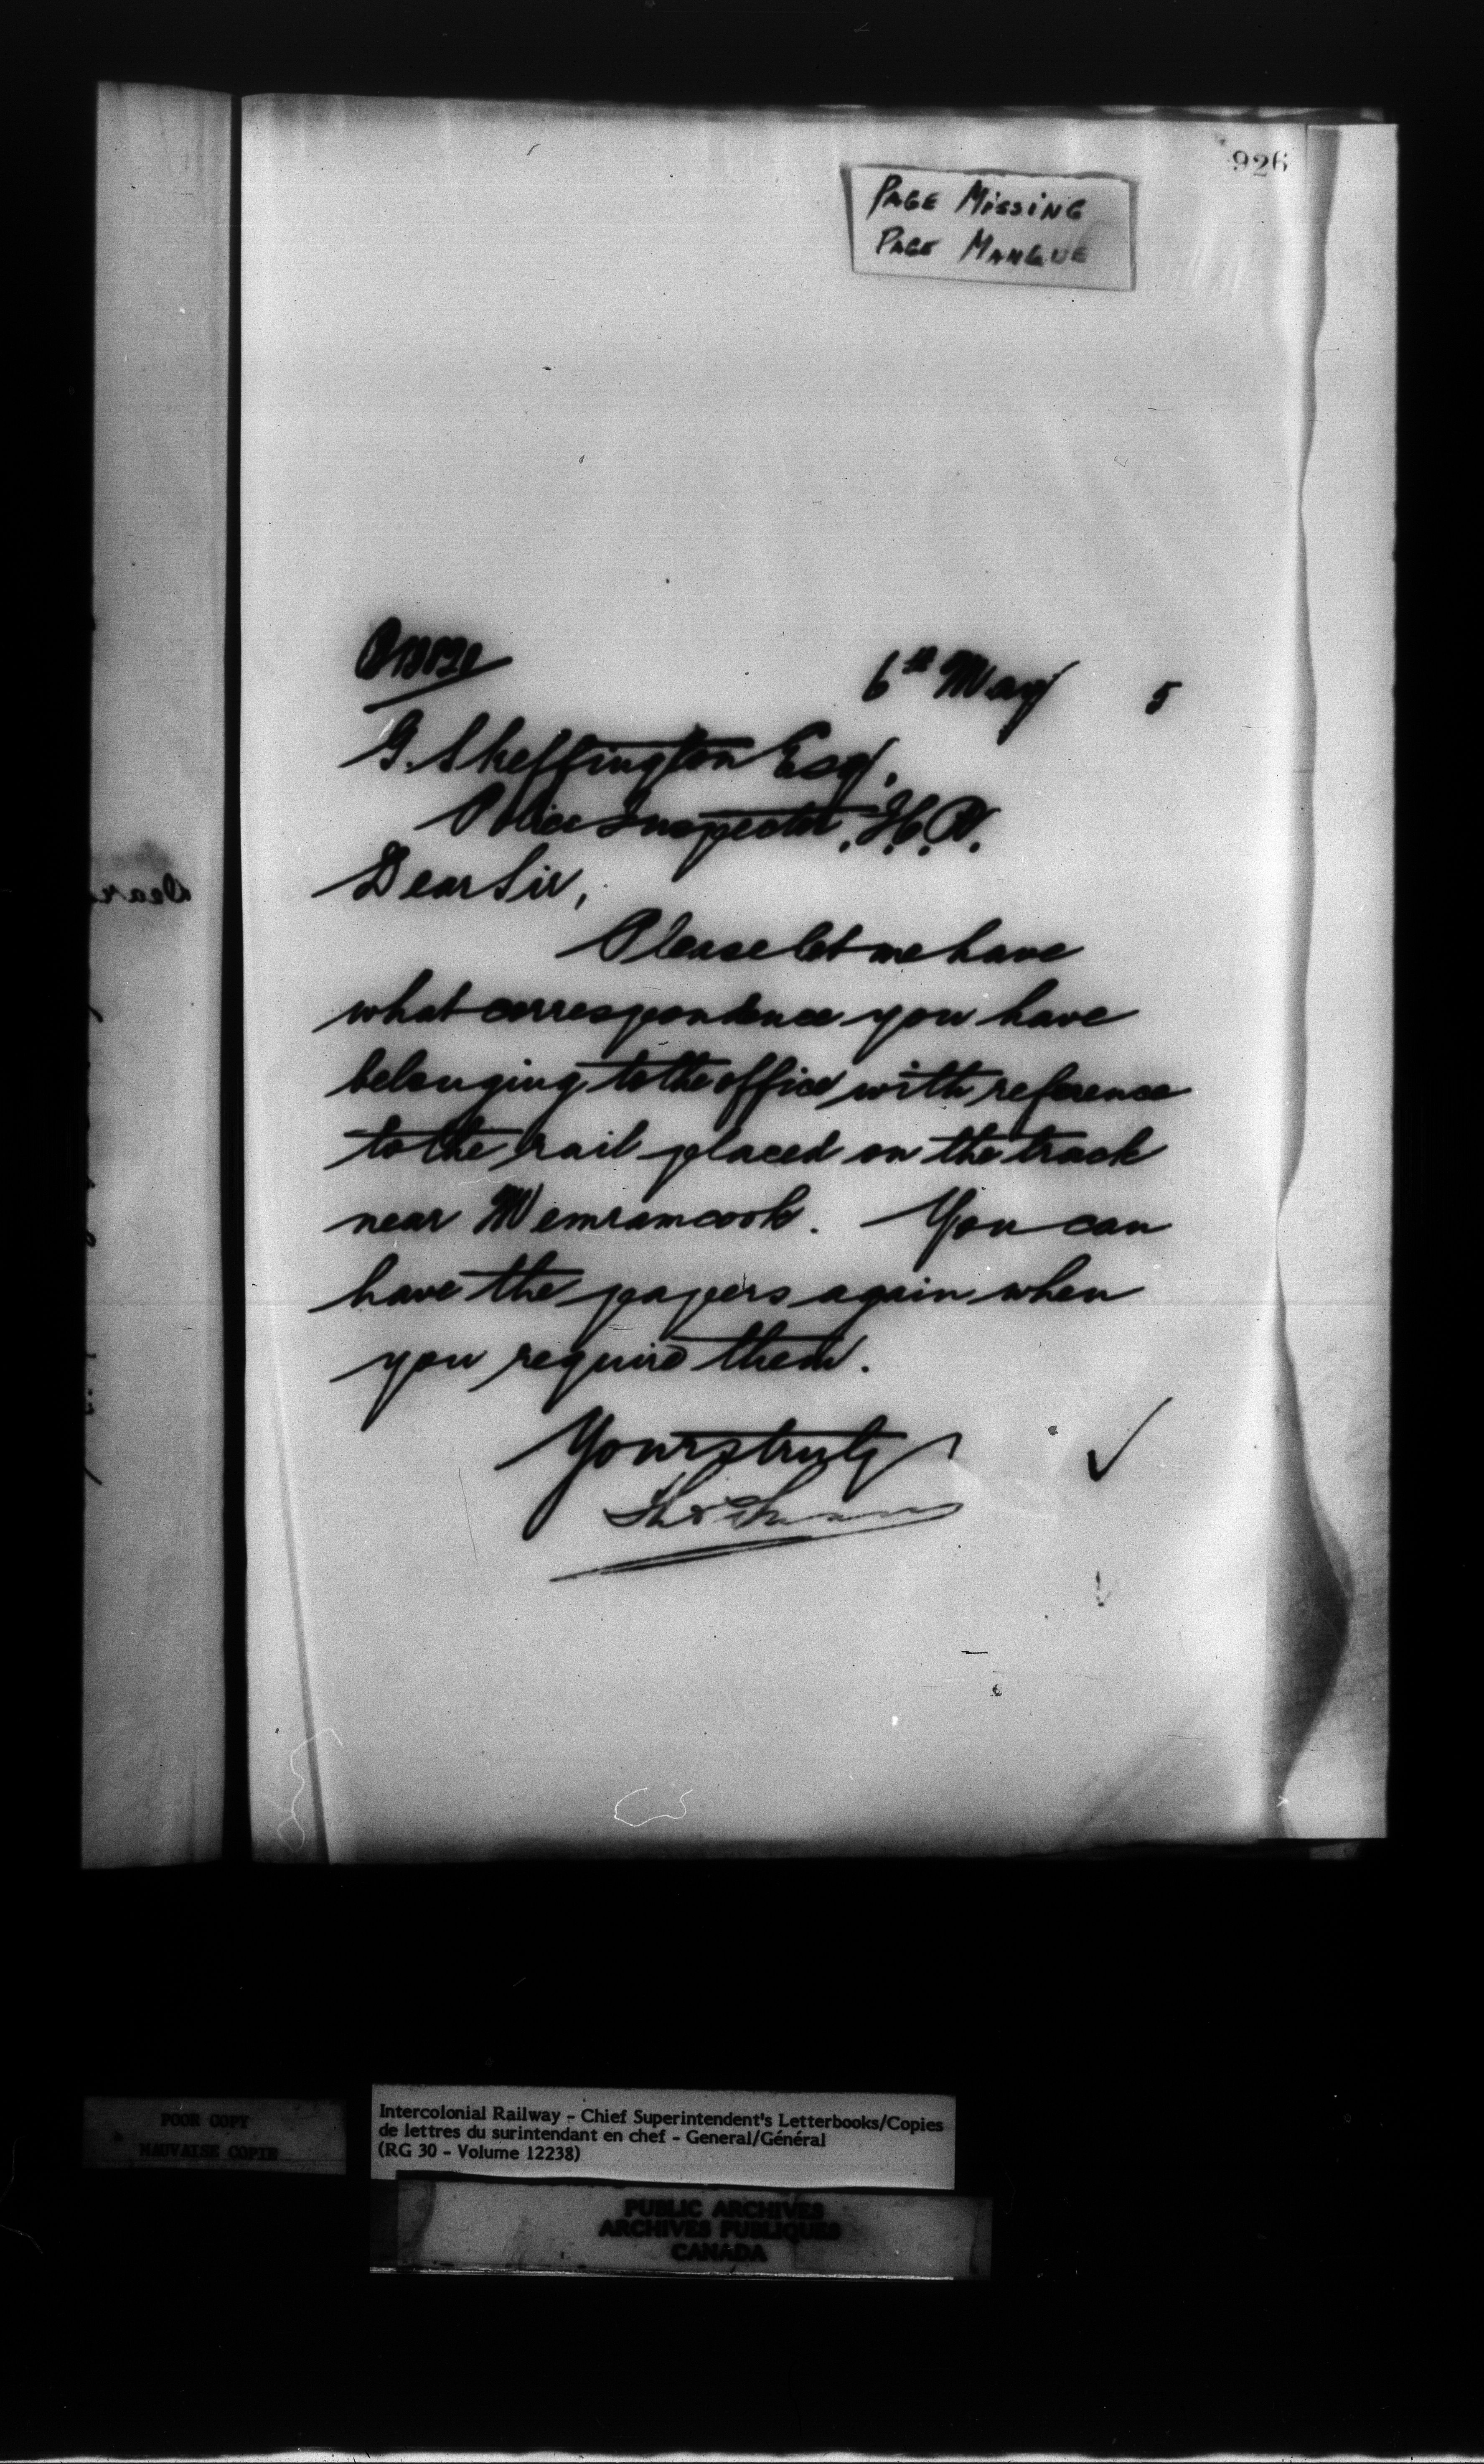 926
PAGE MISSING
PAGE MANQUE
6th May 5
G. Skeffington Esq.
Police Inspector,
Dear Sir,
Please let me have
what correspondence you have
belonging to the office with reference
to the rail placed on the track
near Memramcook. You can
have the papers again when
you require them.
Yours truly
Dear
POOR COPY
MAUVAISE COPIE
Intercolonial Railway - Chief Superintendent's Letterbooks/Copies
de lettres du surintendant en chef - General/Général
(RG 30 - Volume 12238)
PUBLIC ARCHIVES
ARCHIVES PUBLIQUES
CANADA